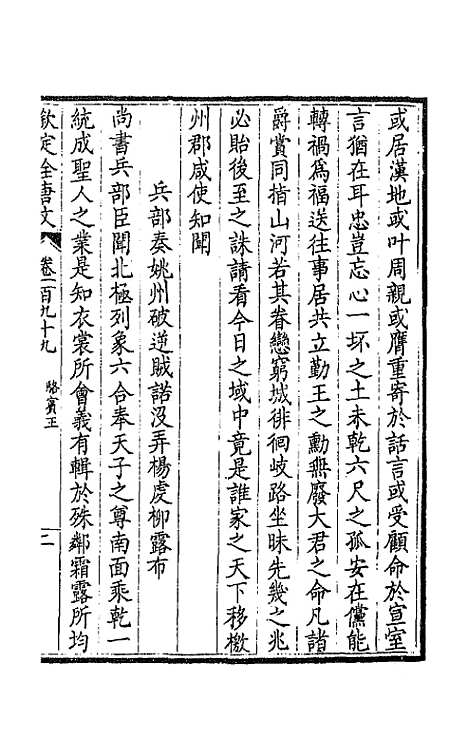 或居漢地或叶周親或膺重寄於話言或受顧命於宣室
言猶在耳忠豈忘心一坏之土未乾六尺之孤安在儻能
轉禍為福送往事居共立勤王之勳無廢大君之命凡諸
爵賞同指山河若其眷戀窮城徘徊岐路坐昧先幾之兆
必貽後至之誅請看今日之域中竟是誰家之天下移檄
州郡咸使知聞
兵部奏姚州破逆賊諾沒弄楊虔柳露布
尚書兵部臣聞北極列象六合奉天子之尊南面乘乾一
統成聖人之業是知衣裳所會義有輯於殊鄰霜露所均
欽定全唐文 卷一百九十九 駱賓王 二